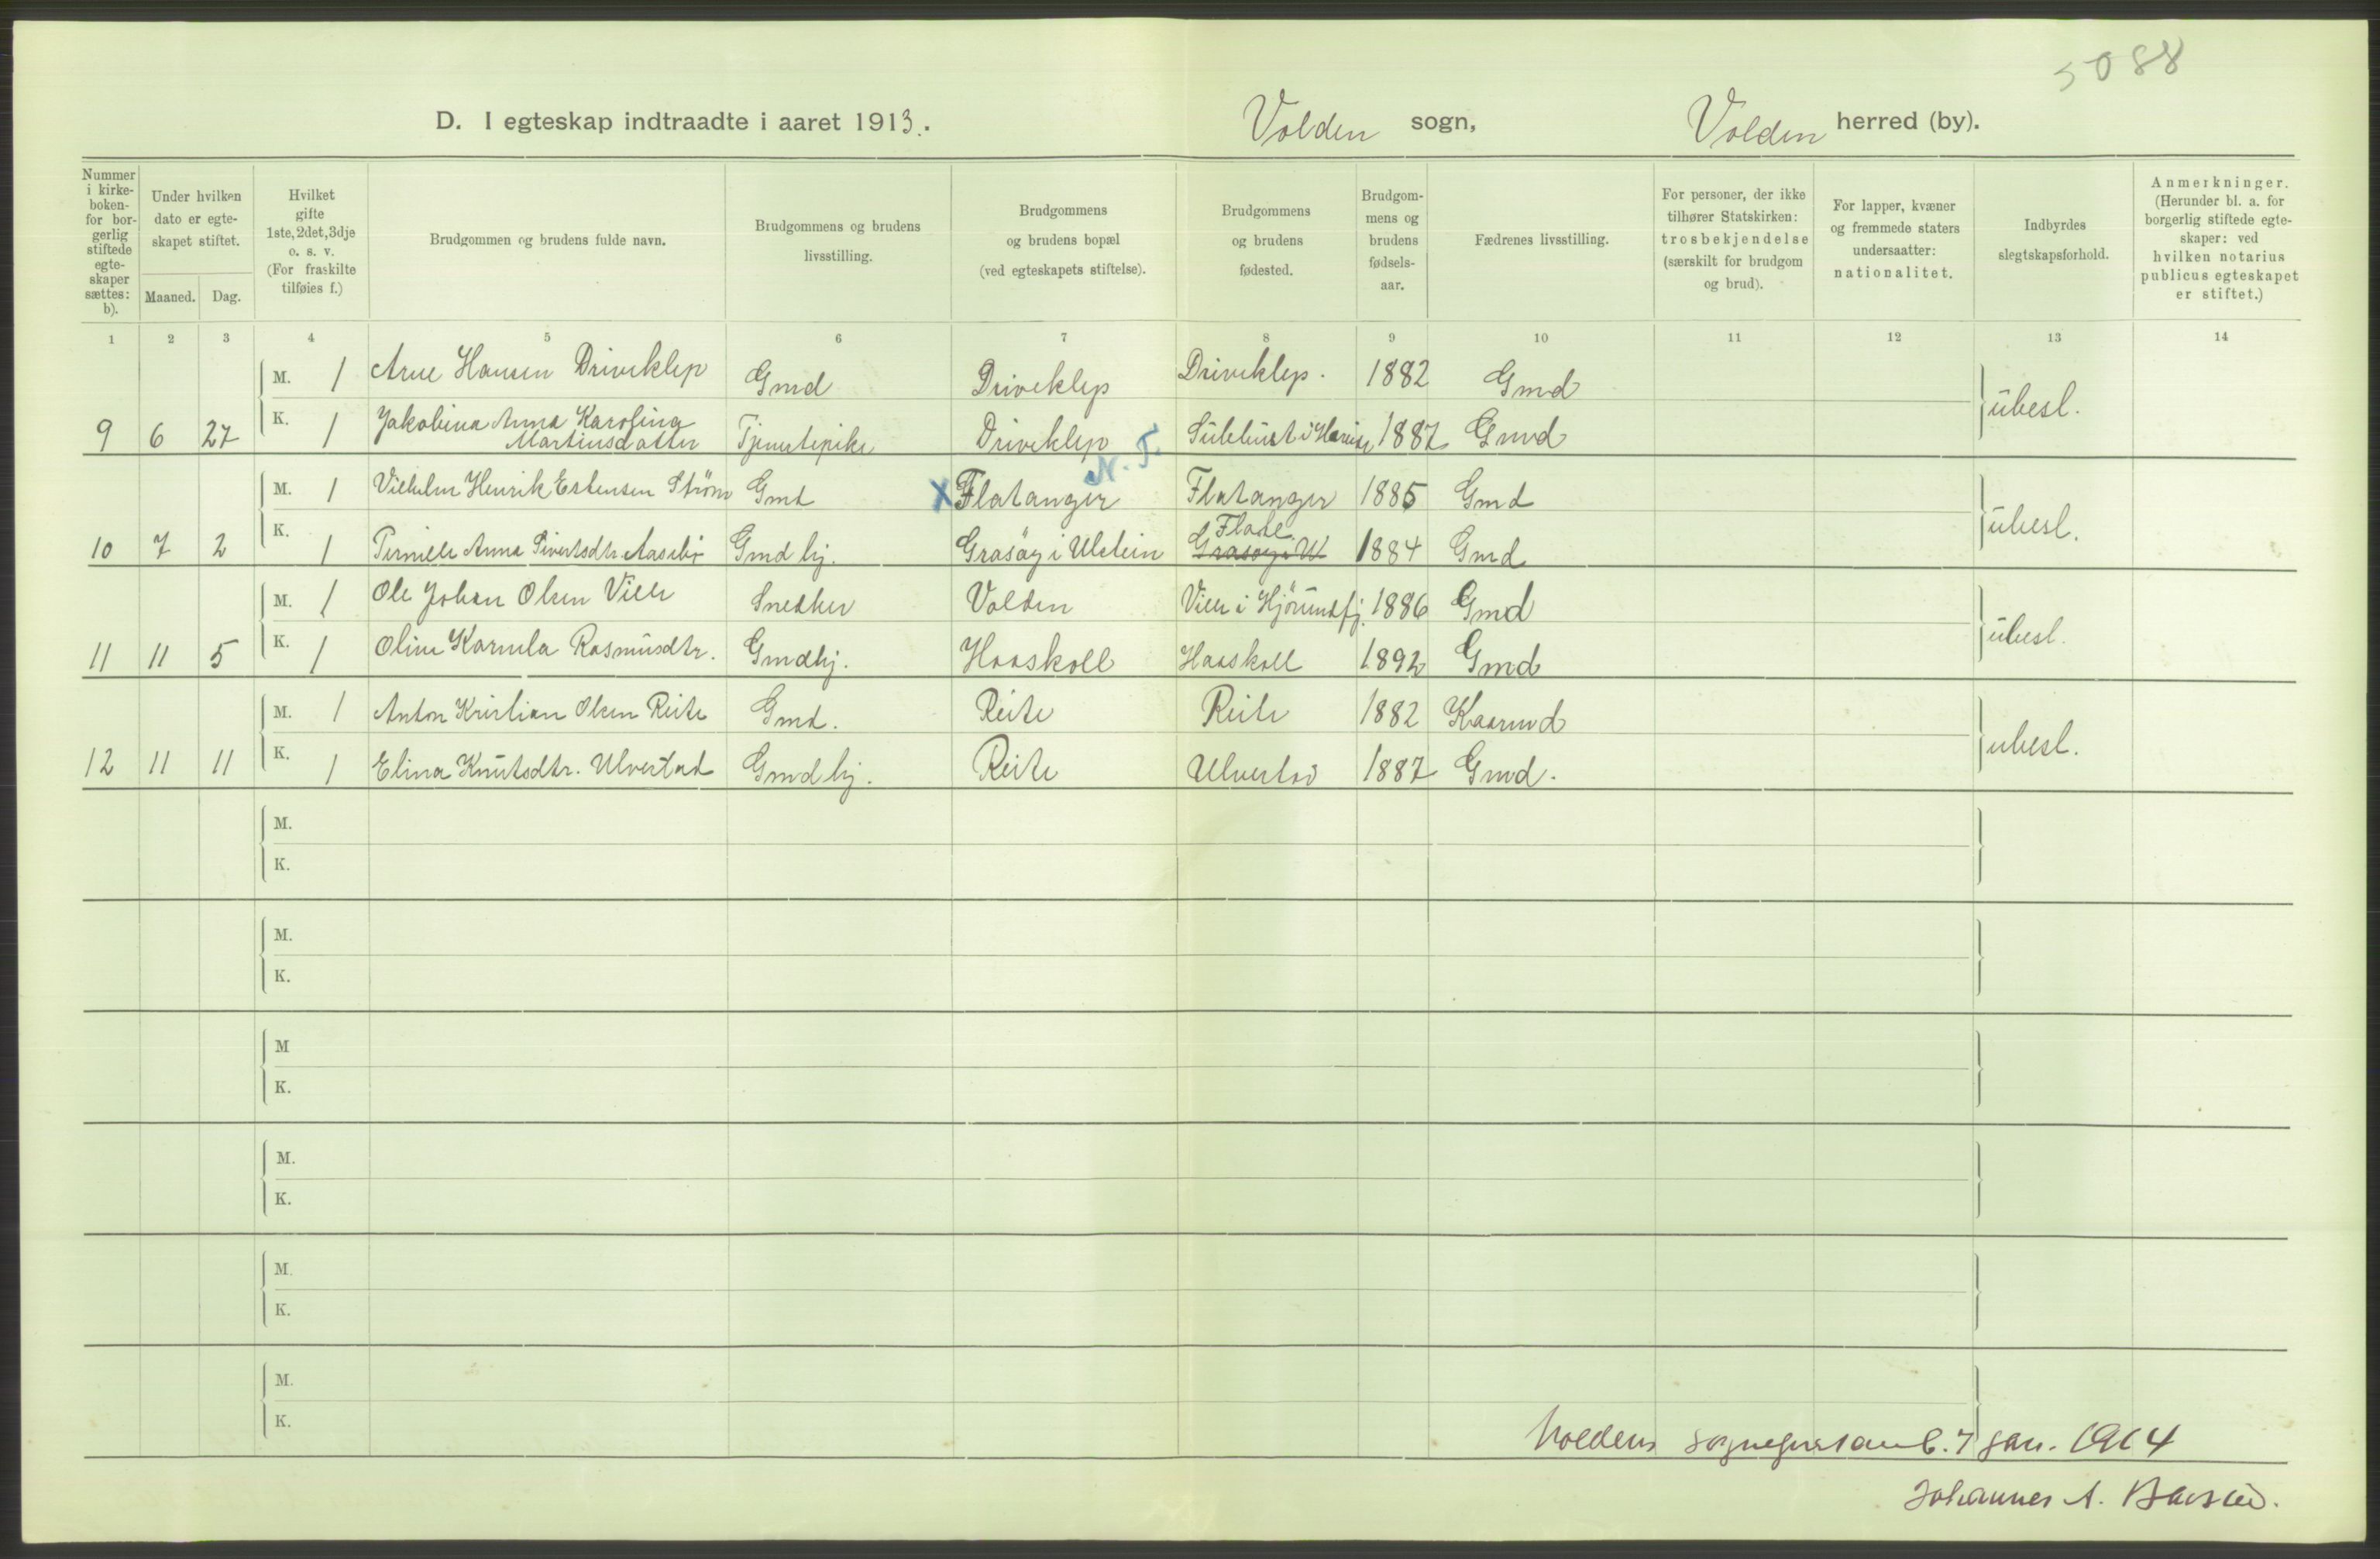 5088
D. I egteskap indtraadte i aaret 1913. Volden sogn, Volden herred (by).
Nummer i kirke-boken- for bor-gerlig stiftede egte-skaper sættes: b).
Under hvilken dato er egte-skapet stiftet.
Maaned. Dag.
Hvilket gifte 1ste, 2det, 3dje o. s. v. (For fraskilte tilføies f.)
Brudgommen og brudens fulde navn.
Brudgommens og brudens livsstilling.
Brudgommens og brudens bopæl (ved egteskapets stiftelse).
Brudgommens og brudens fødested.
Brudgom-mens og brudens fødsels-aar.
Fædrenes livsstilling.
For personer, der ikke tilhører Statskirken: trosbekjendelse (særskilt for brudgom og brud).
For lapper, kvæner og fremmede staters undersaatter: nationalitet.
Indbyrdes slegtskapsforhold.
Anmerkninger. (Herunder bl. a. for borgerlig stiftede egte-skaper: ved hvilken notarius publicus egteskapet er stiftet.)
1 2 3 4 5 6 7 8 9 10 11 12 13 14
M. 1 Arne Hansen Driveklep Gmd Driveklep Driveklep. 1882 Gmd
9 6 27 K. 1 Jakobina Anna Karolina Martinsdatter Tjenestepike Driveklep 1887 Gmd ubesl.
N. T.
M. 1 Vilhelm Henrik Estensen Strøm Gmd X Flatanger Flatanger 1885 Gmd
10 7 2 K. 1 Pernille Anna Sivertsdtr. Aasebø Gmd hj. Grasøy i Ulstein Flade Grasøy i Ul 1884 Gmd ubesl.
M. 1 Ole Johan Olsen Viller Snedker Volden i Hjørundfj. 1886 Gmd
11 11 5 K. 1 Oline Kornela Rasmusdtr. Gmdhj. Haaskoll Haaskoll 1892 Gmd ubesl.
M. 1 Anton Kristian Olsen Reite Gmd. Reite Reite 1882 Kaarmd
12 11 11 K. 1 Elina Knutsdtr. Ulvestad Gmd hj. Reite Ulvestad 1887 Gmd. ubesl.
M.
K.
M.
K.
M
K.
M.
K.
M.
K.
M.
K.
Voldens sogneprestemb. 7 jan. 1914
Johannes A. Barstad.